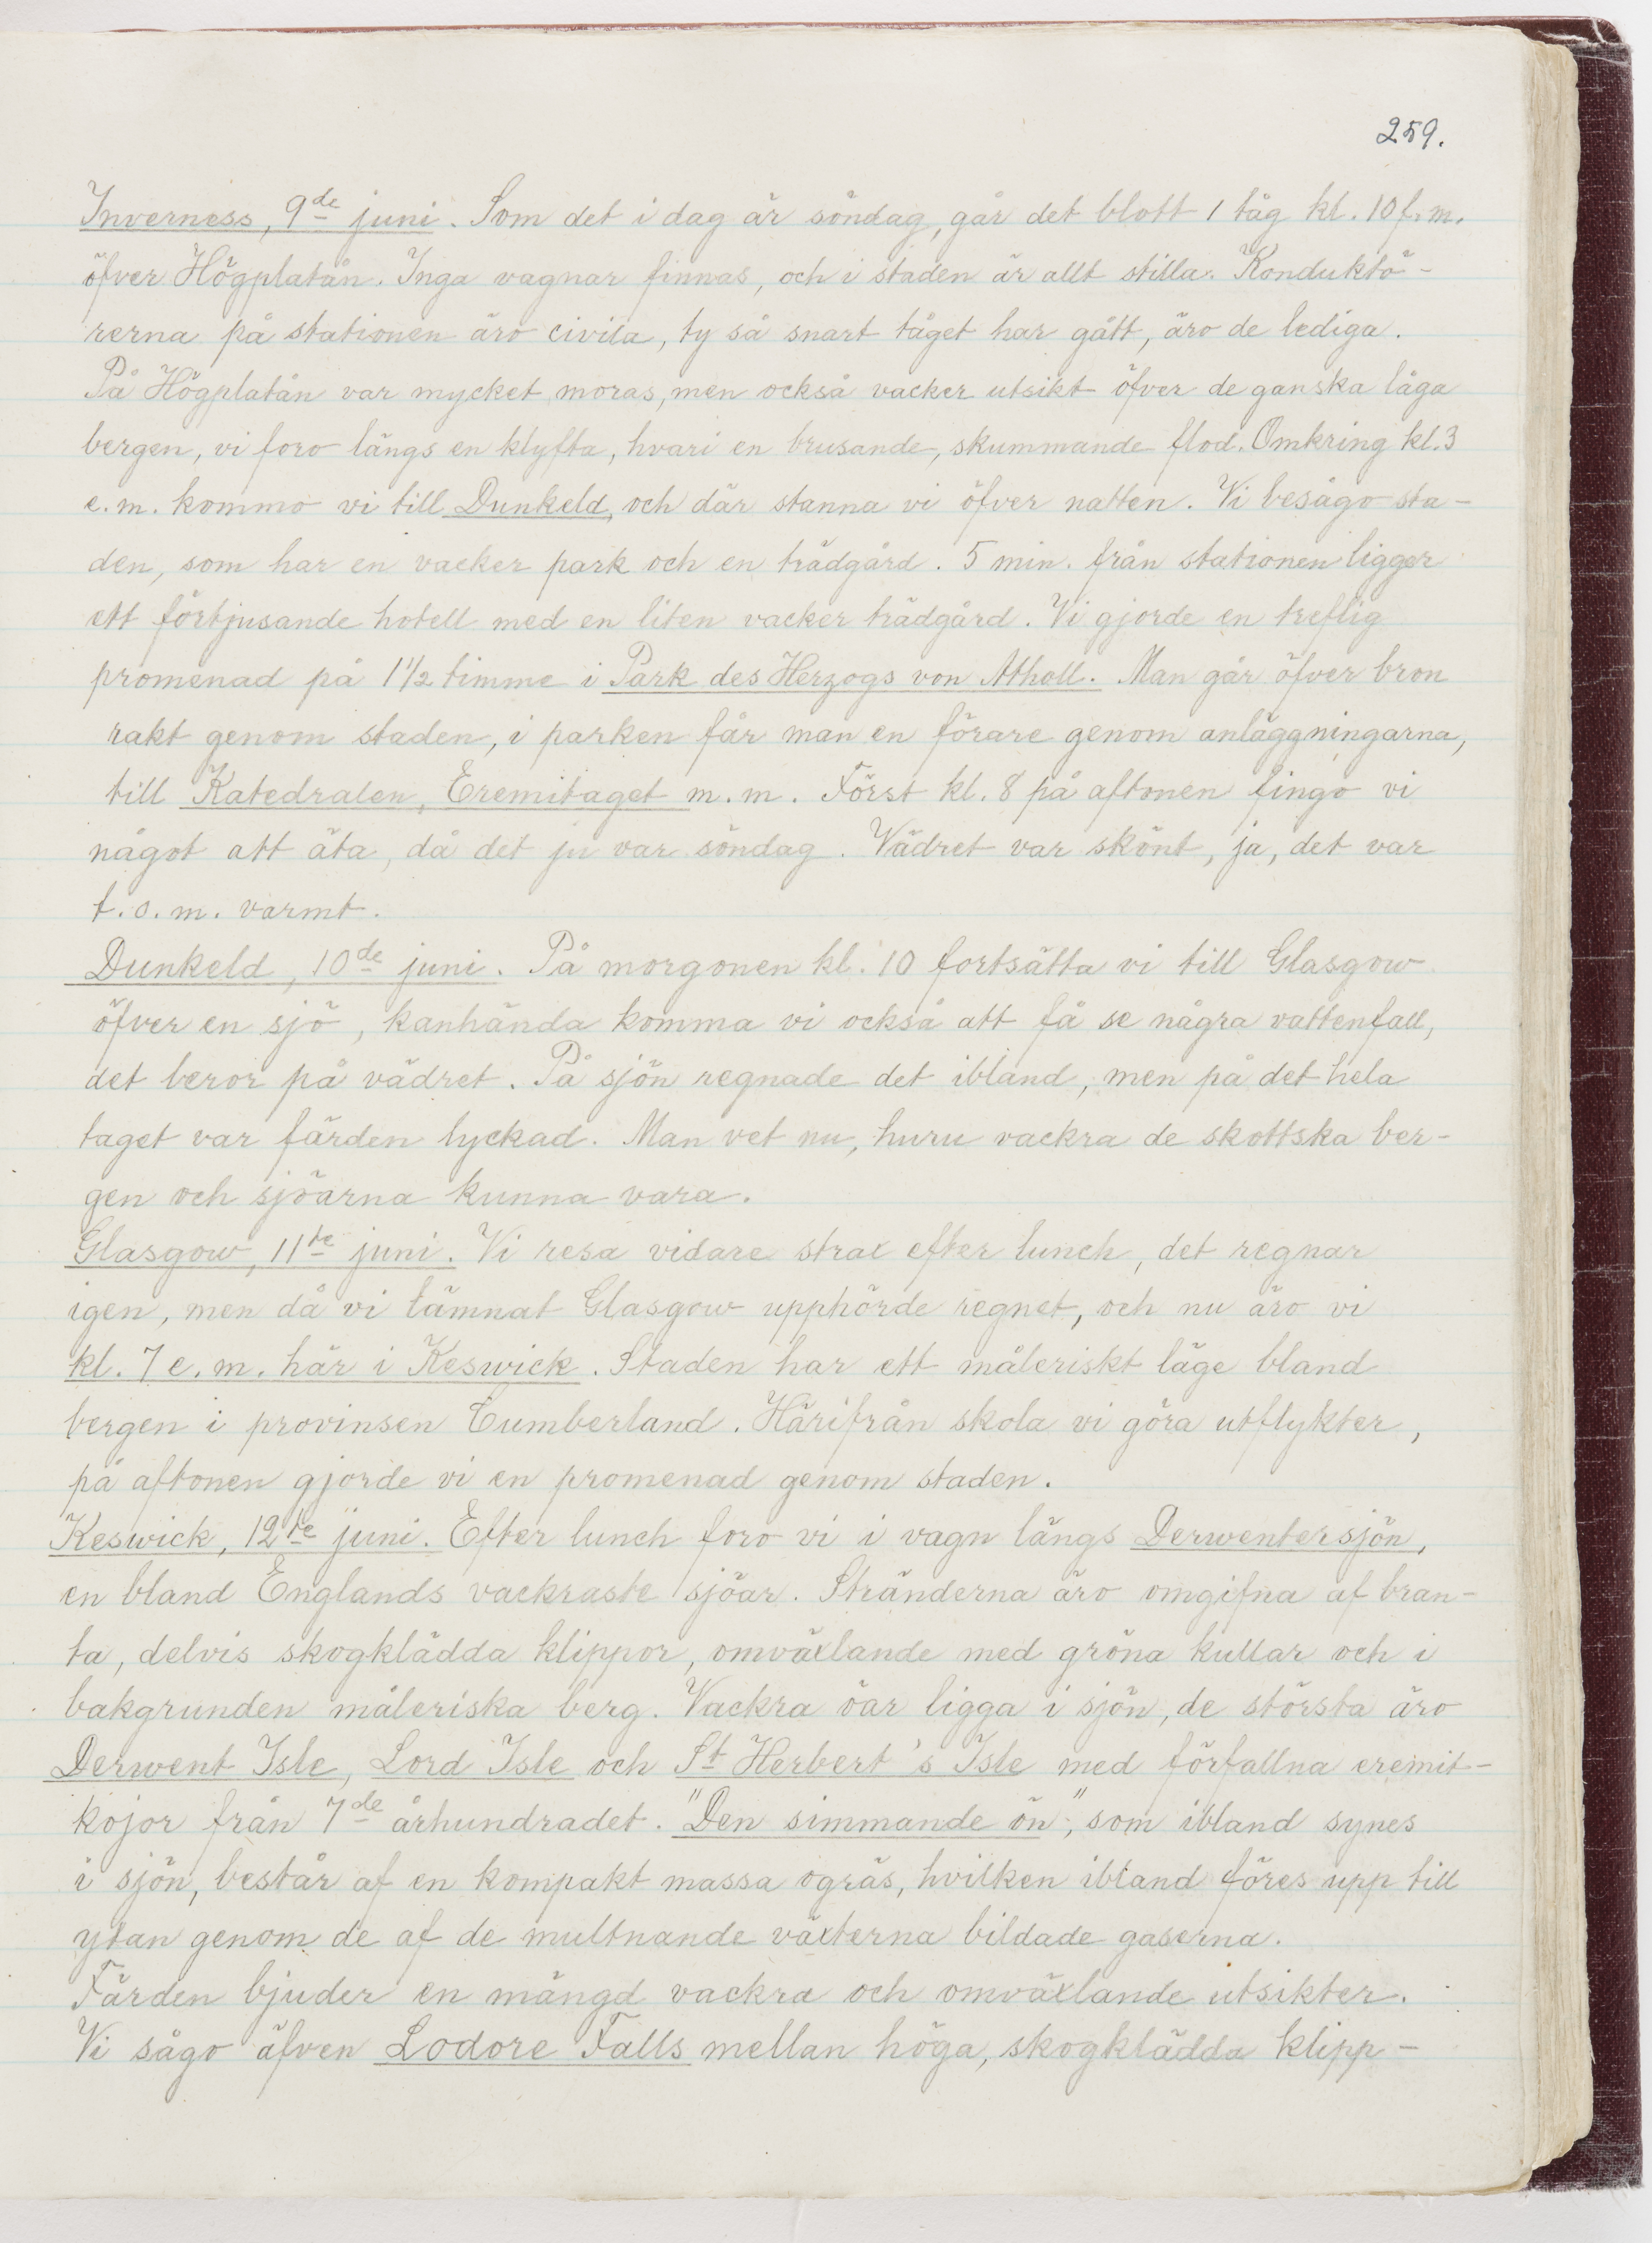 259.
Inverness, 9de juni. Som det i dag är söndag, går det blott 1 tåg kl. 10 f.m.
öfver Högplatån. Inga vagnar finnas, och i staden är allt stilla. Konduktö-
rerna på stationen äro civila, ty så snart tåget har gått, äro de lediga.
På Högplatån var mycket moras, men också vacker utsikt öfver de ganska låga
bergen, vi foro längs en klyfta, hvari en brusande, skummande flod. Omkring kl. 3
e.m. kommo vi till Dunkeld, och där stanna vi öfver natten. Vi besågo sta-
den, som har en vacker park och en trädgård. 5 min. från stationen ligger
ett förtjusande hotell med en liten vacker trädgård. Vi gjorde en treflig
promenad på 1 1/2 timme i Park des Herzogs von Atholl. Man går öfver bron
rakt genom staden, i parken får man en förare genom anläggningarna,
till Katedralen, Eremitaget m.m. Först kl. 8 på aftonen fingo vi
något att äta, då det ju var söndag. Vädret var skönt, ja, det var
t.o.m. varmt.
Dunkeld, 10de juni. På morgonen kl. 10 fortsätta vi till Glasgow
öfver en sjö, kanhända komma vi också att få se några vattenfall,
det beror på vädret. På sjön regnade det ibland, men på det hela
taget var färden lyckad. Man vet nu, huru vackra de skottska ber-
gen och sjöarna kunna vara.
Glasgow, 11te juni. Vi resa vidare strax efter lunch, det regnar
igen, men då vi lämnat Glasgow upphörde regnet, och nu äro vi
kl. 7 e.m. här i Keswick. Staden har ett måleriskt läge bland
bergen i provinsen Cumberland. Härifrån skola vi göra utflykter,
på aftonen gjorde vi en promenad genom staden.
Keswick, 12te juni. Efter lunch foro vi i vagn längs Derwentersjön,
en bland Englands vackraste sjöar. Stränderna äro omgifna af bran-
ta, delvis skogklädda klippor, omväxlande med gröna kullar och i
bakgrunden måleriska berg. Vackra öar ligga i sjön, de största äro
Derwent Isle, Lord Isle och St Herbert's Isle med förfallna eremit-
kojor från 7de århundradet. "Den simmande ön", som ibland synes
i sjön, består af en kompakt massa ogräs, hvilken ibland föres upp till
ytan genom de af de multnande växterna bildade gaserna.
Färden bjuder en mängd vackra och omväxlande utsikter.
Vi sågo äfven Lodore Falls mellan höga, skogklädda klipp-